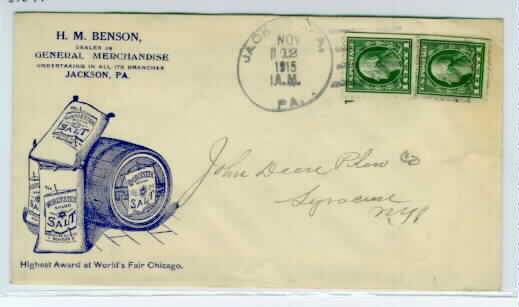 H. M. BENSON,
DEALER IN
GENERAL MERCHANDISE
UNDERTAKING IN ALL ITS BRANCHES
JACKSON, PA.
JACKSON
NOV
12
1915
A.M.
PA.
WORCESTER
SALT
No. 1
WORCESTER
SALT
WORCESTER
SALT
John Deere Plow Co
Syracuse
NY
Highest Award at World's Fair Chicago.